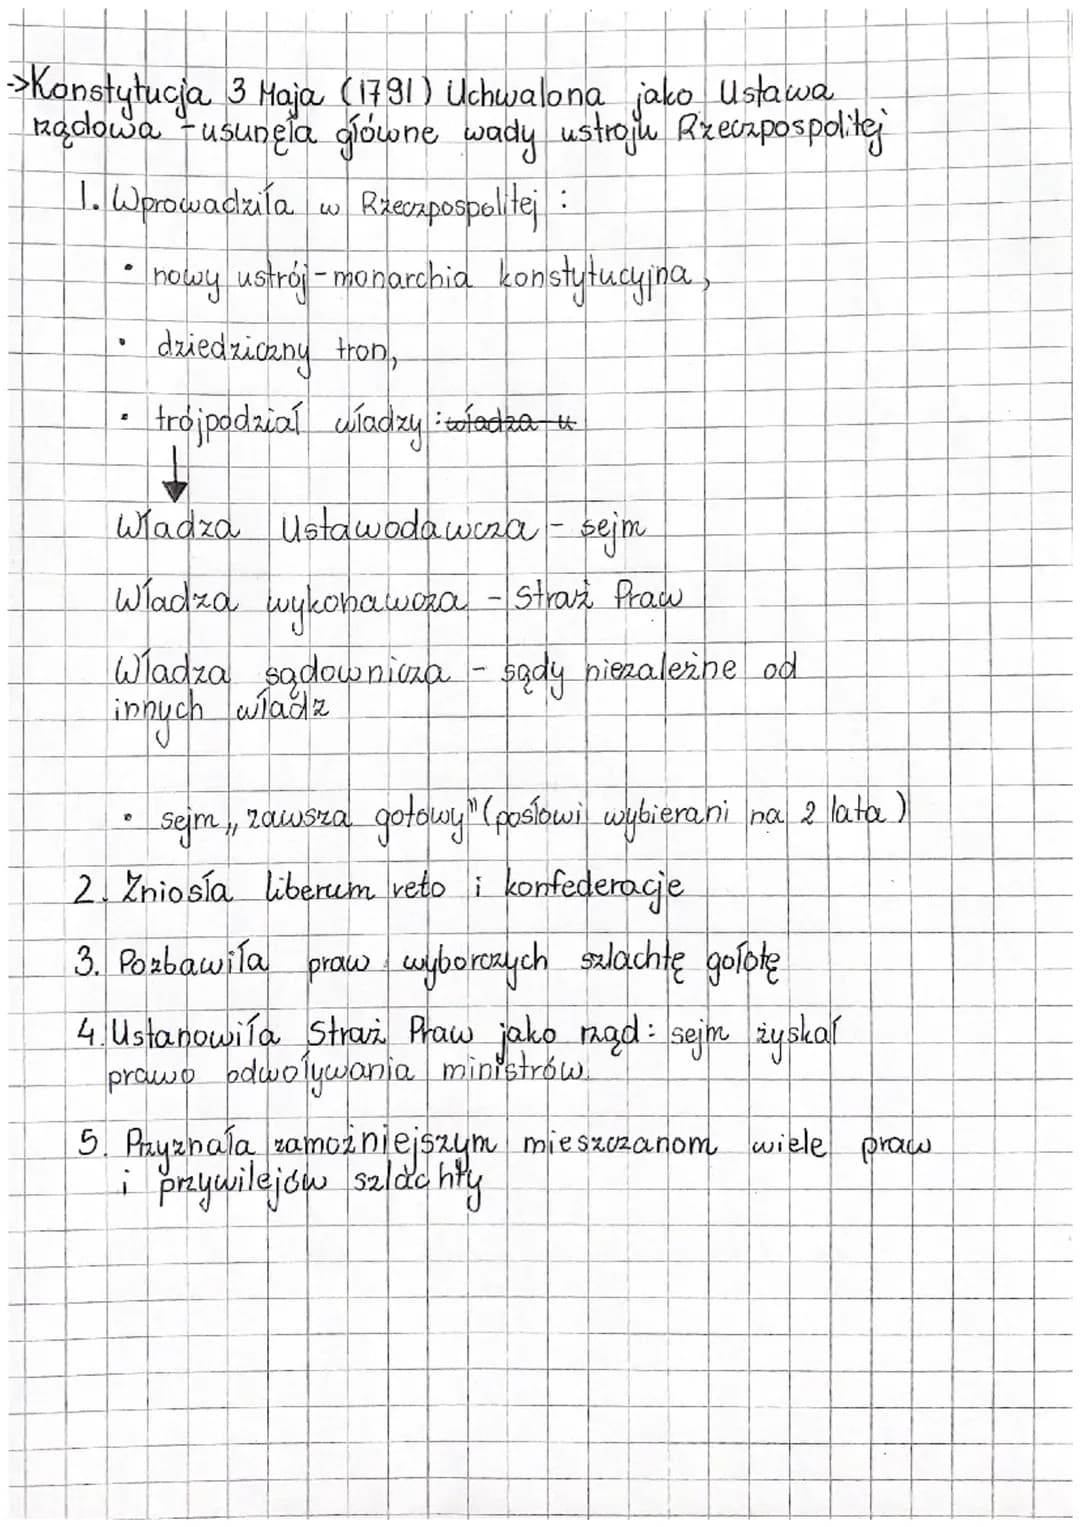 ->Konstytucja 3 Maja (1791) Uchwalona jako Ustawa
rządowa - usunęła główne wady ustroju Rzeczpospolitej
1. Wprowadziła w Rzeczpospolitej :
• nowy ustrój - monarchia konstytucyjna,
• dziedziczny tron,
• trójpodział władzy : władza u
Władza Ustawodawcza - sejm
Władza wykonawcza - Straż Praw
Władza sądownicza - sądy niezależne od
innych władz
• sejm „zawsza gotowy" (posłowi wybierani na 2 lata)
2. Zniosła liberum veto i konfederacje
3. Pozbawiła praw wyborczych szlachtę gołotę
4. Ustanowiła Straż Praw jako rząd: sejm zyskał
prawo odwoływania ministrów.
5. Przyznała zamożniejszym mieszczanom wiele praw
i przywilejów szlachty